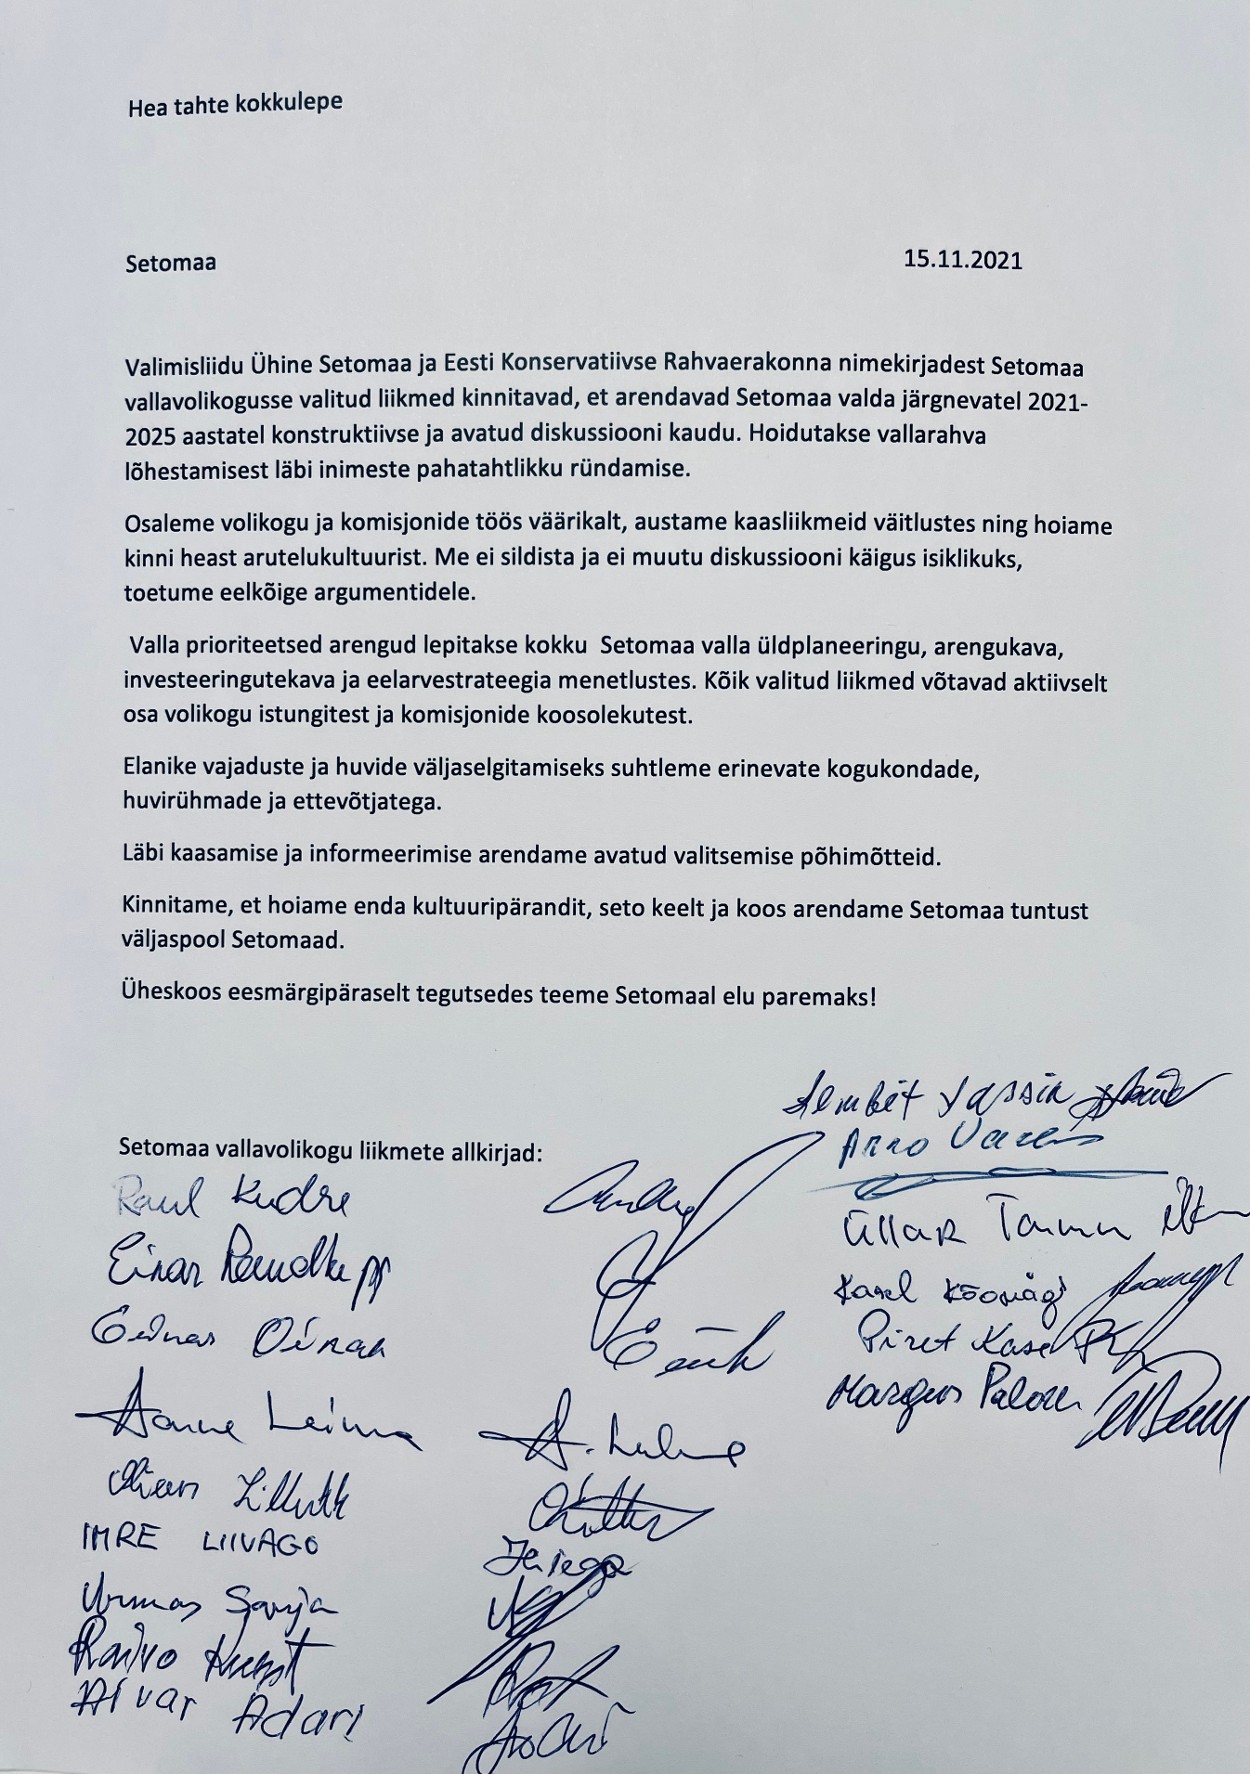 Hea tahte kokkulepe
Setomaa 15.11.2021
Valimisliidu Ühine Setomaa ja Eesti Konservatiivse Rahvaerakonna nimekirjadest Setomaa
vallavolikogusse valitud liikmed kinnitavad, et arendavad Setomaa valda järgnevatel 2021-
2025 aastatel konstruktiivse ja avatud diskussiooni kaudu. Hoidutakse vallarahva
lõhestamisest läbi inimeste pahatahtlikku ründamise.
Osaleme volikogu ja komisjonide töös väärikalt, austame kaasliikmeid väitlustes ning hoiame
kinni heast arutelukultuurist. Me ei sildista ja ei muutu diskussiooni käigus isiklikuks,
toetume eelkõige argumentidele.
Valla prioriteetsed arengud lepitakse kokku Setomaa valla üldplaneeringu, arengukava,
investeeringutekava ja eelarvestrateegia menetlustes. Kõik valitud liikmed võtavad aktiivselt
osa volikogu istungitest ja komisjonide koosolekutest.
Elanike vajaduste ja huvide väljaselgitamiseks suhtleme erinevate kogukondade,
huvirühmade ja ettevõtjatega.
Läbi kaasamise ja informeerimise arendame avatud valitsemise põhimõtteid.
Kinnitame, et hoiame enda kultuuripärandit, seto keelt ja koos arendame Setomaa tuntust
väljaspool Setomaad.
Üheskoos eesmärgipäraselt tegutsedes teeme Setomaal elu paremaks!
Setomaa vallavolikogu liikmete allkirjad:
Raul Kudre
Einar
Aarne Leima
IMRE LIIVAGO
Urmas Sarja
Raivo
Aivar Adari
Arno
Üllar
Karel Kõomägi
Piret Kase
Margus